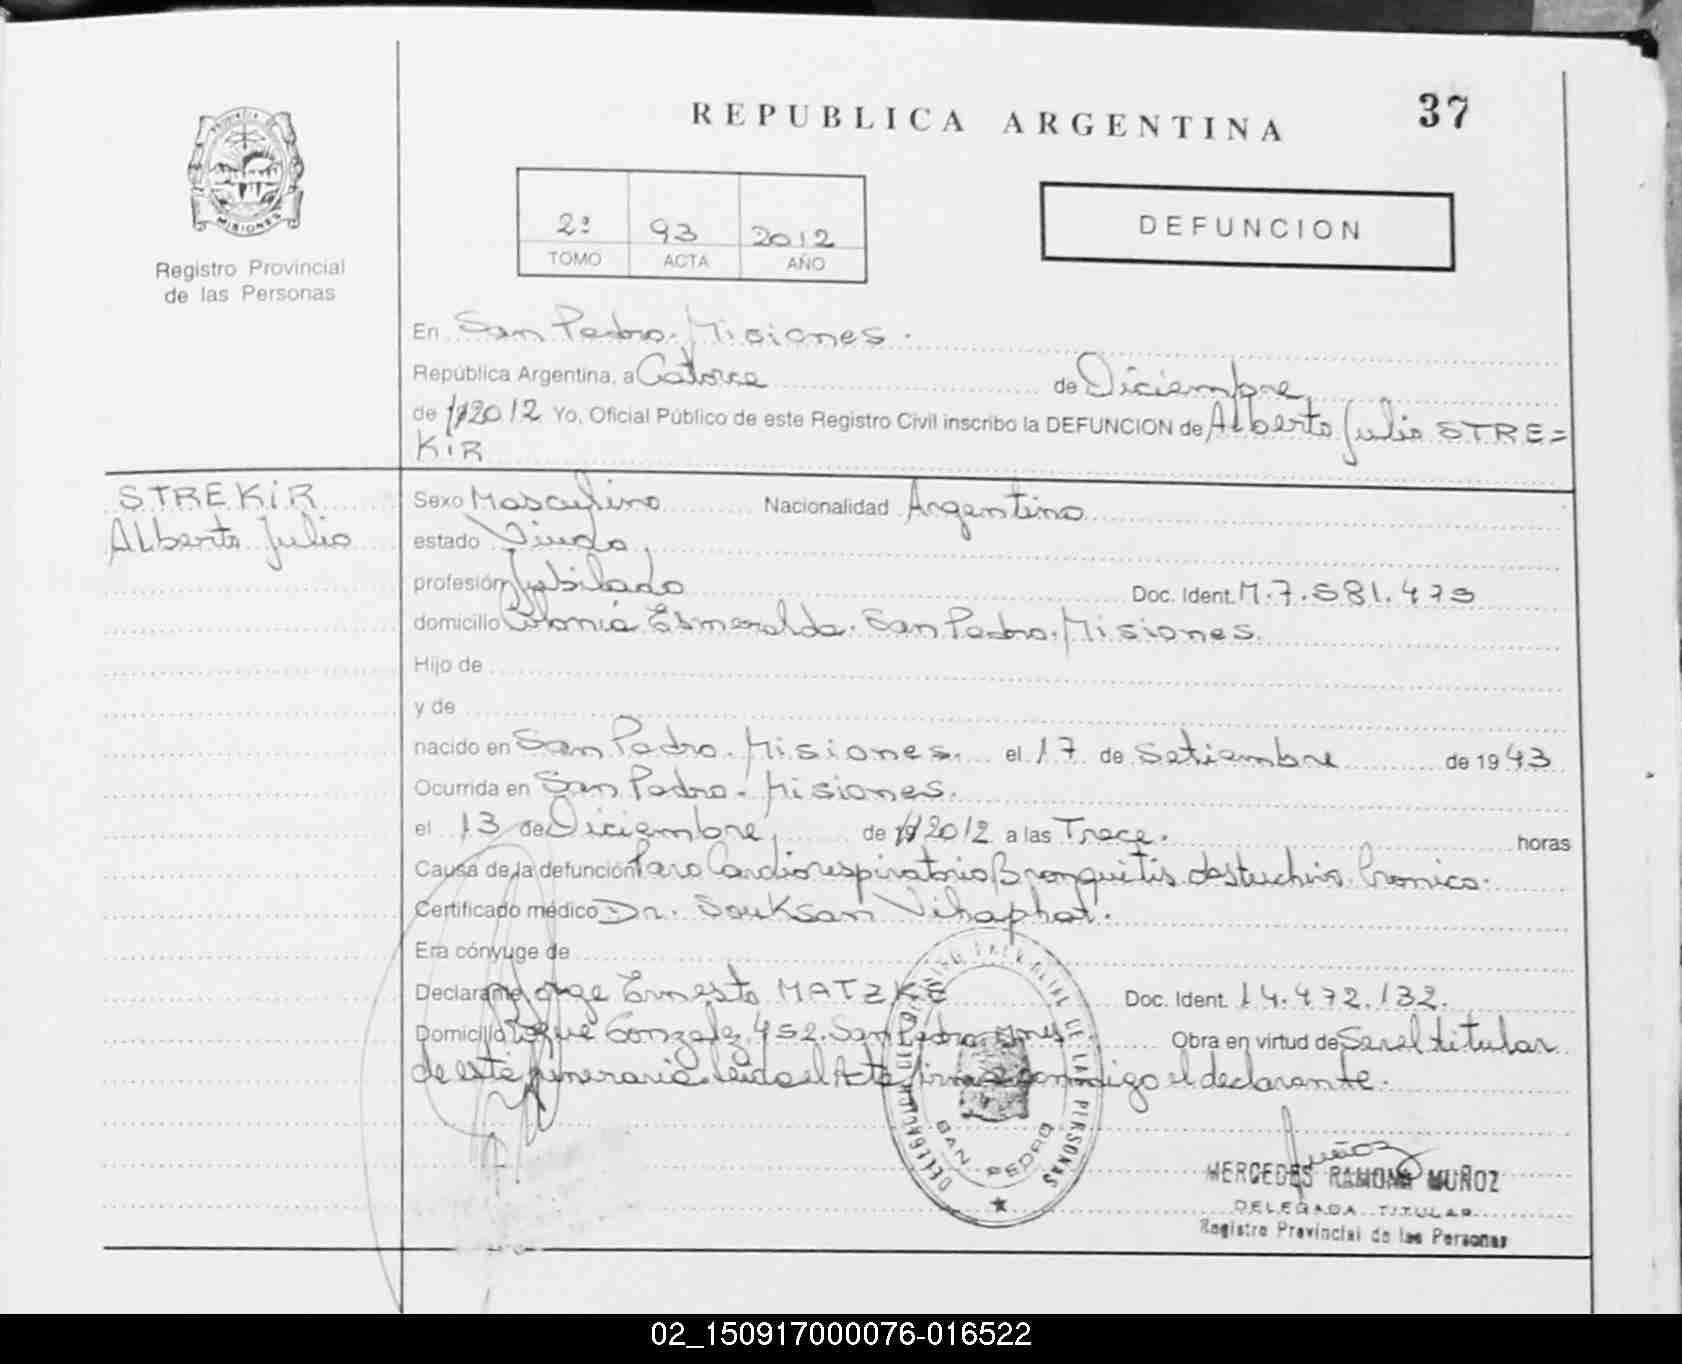 REPUBLICA ARGENTINA
37
PROVINCIA
MISIONES
Registro Provincial
de las Personas
2º 93 2012
TOMO ACTA AÑO
DEFUNCION
En San Pedro. Misiones.
República Argentina, a Catorce de Diciembre
de 19 2012 Yo, Oficial Público de este Registro Civil inscribo la DEFUNCION de Alberto Julio STRE=
KIR
STREKIR
Alberto Julio
Sexo Masculino Nacionalidad Argentina
estado Viudo
profesión Jubilado Doc. Ident. M.7.581.473
domicilio Colonia Esmeralda. San Pedro. Misiones.
Hijo de
y de
nacido en San Pedro. Misiones. el 17 de Setiembre de 1943
Ocurrida en San Pedro. Misiones.
el 13 de Diciembre de 19 2012 a las Trece. horas
Causa de la defunción Paro Cardiorespiratorio Bronquitis Cronica.
Certificado médico Dr. Souksan Vihaphat.
Era cónyuge de
Declarante Jorge Ernesto MATZKE Doc. Ident. 14.472.132.
Domicilio Roque Gonzalez 452. San Pedro. Mnes. Obra en virtud de Ser el titular
de esta funeraria. Leida el Acta firma conmigo el declarante.
DELEGACION REGISTRO PROVINCIAL DE LAS PERSONAS
SAN PEDRO
Muñoz
MERCEDES RAMONA MUÑOZ
DELEGADA TITULAR
Registro Provincial de las Personas
02_150917000076-016522